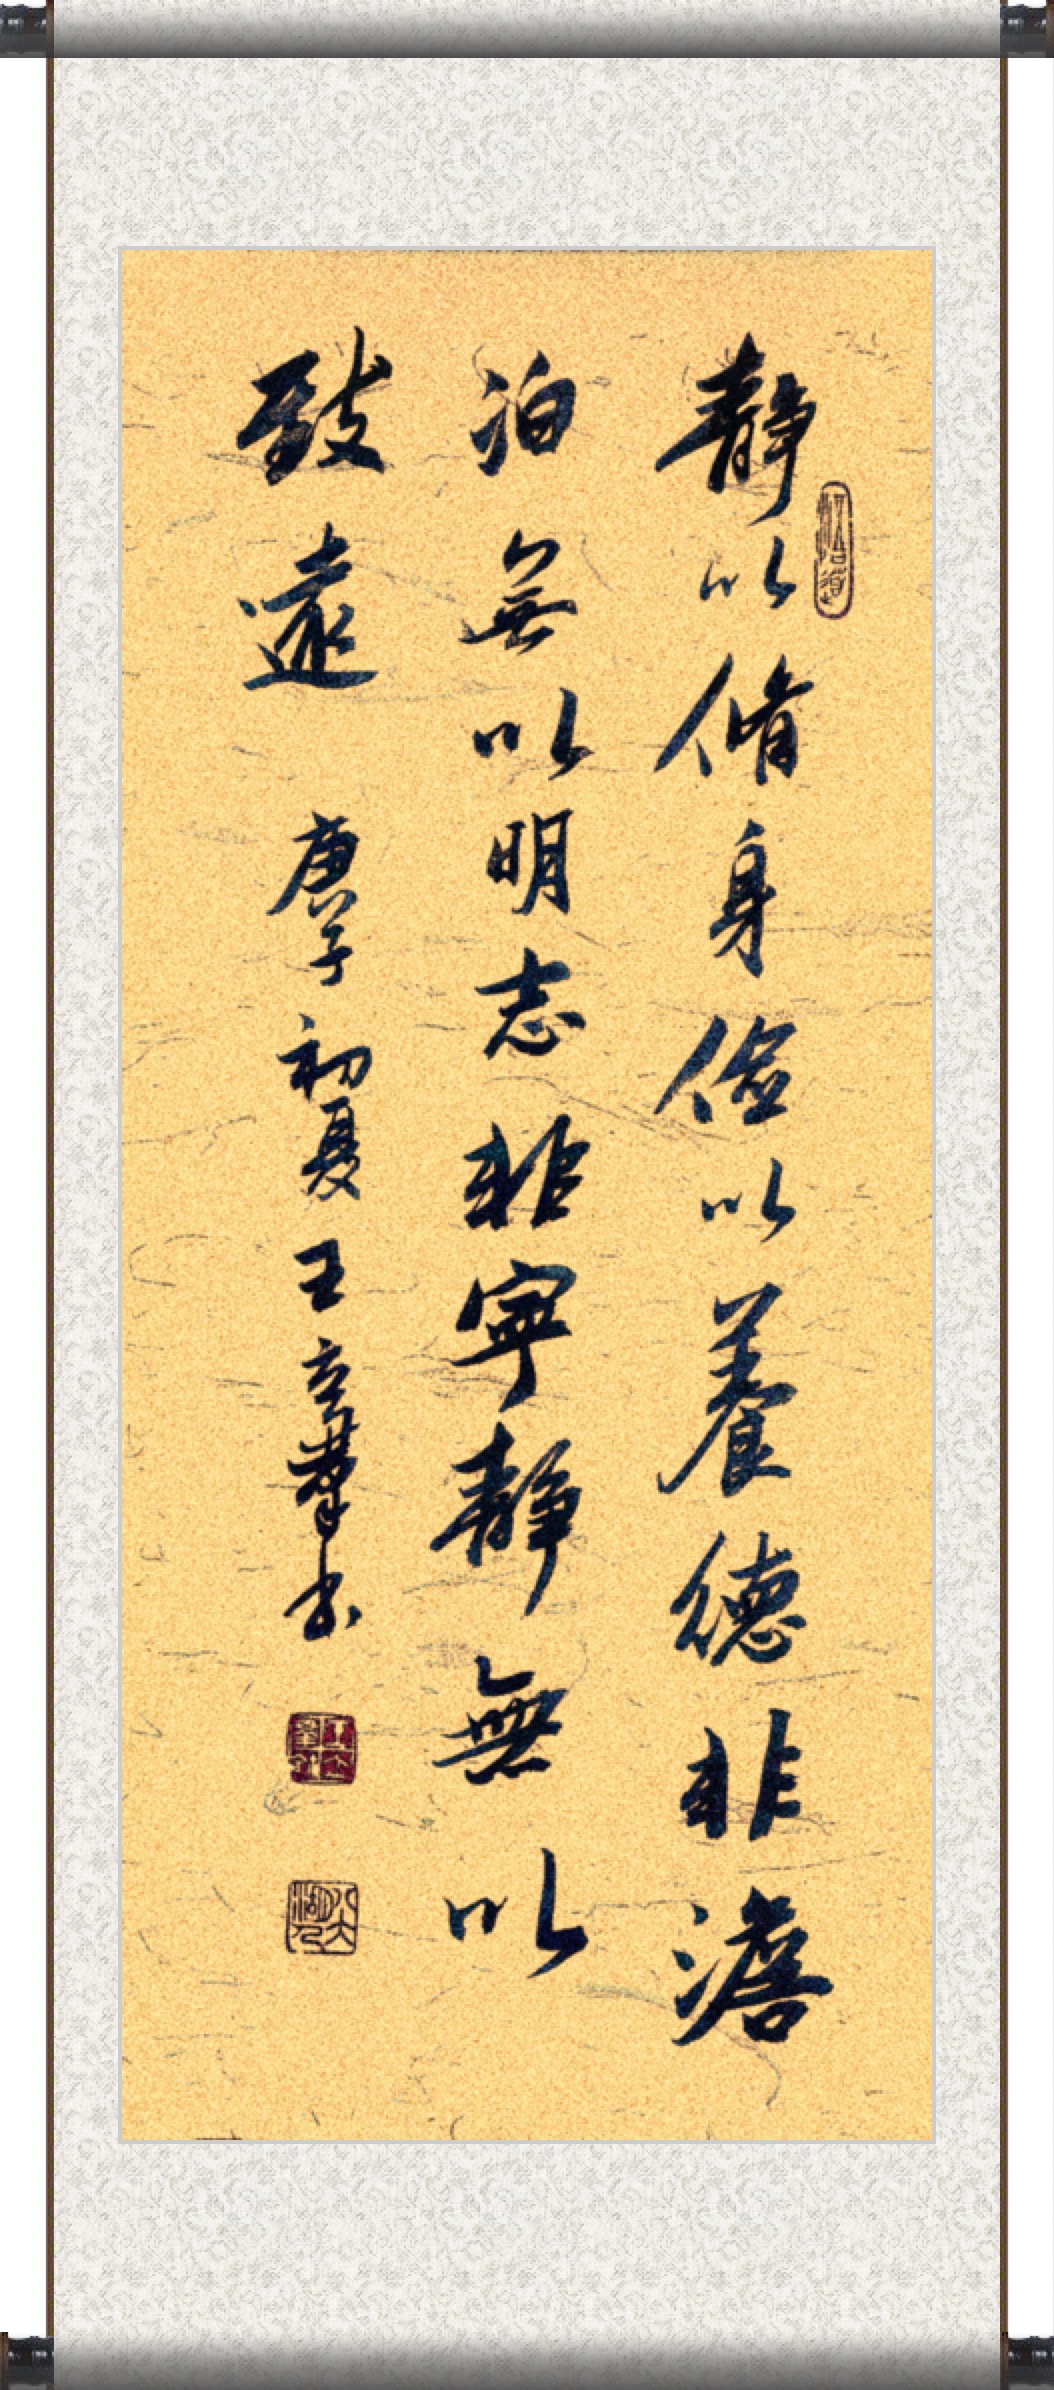 靜以脩身儉以養德非澹
泊無以明志非寧靜無以
致遠
庚子初夏王立群书